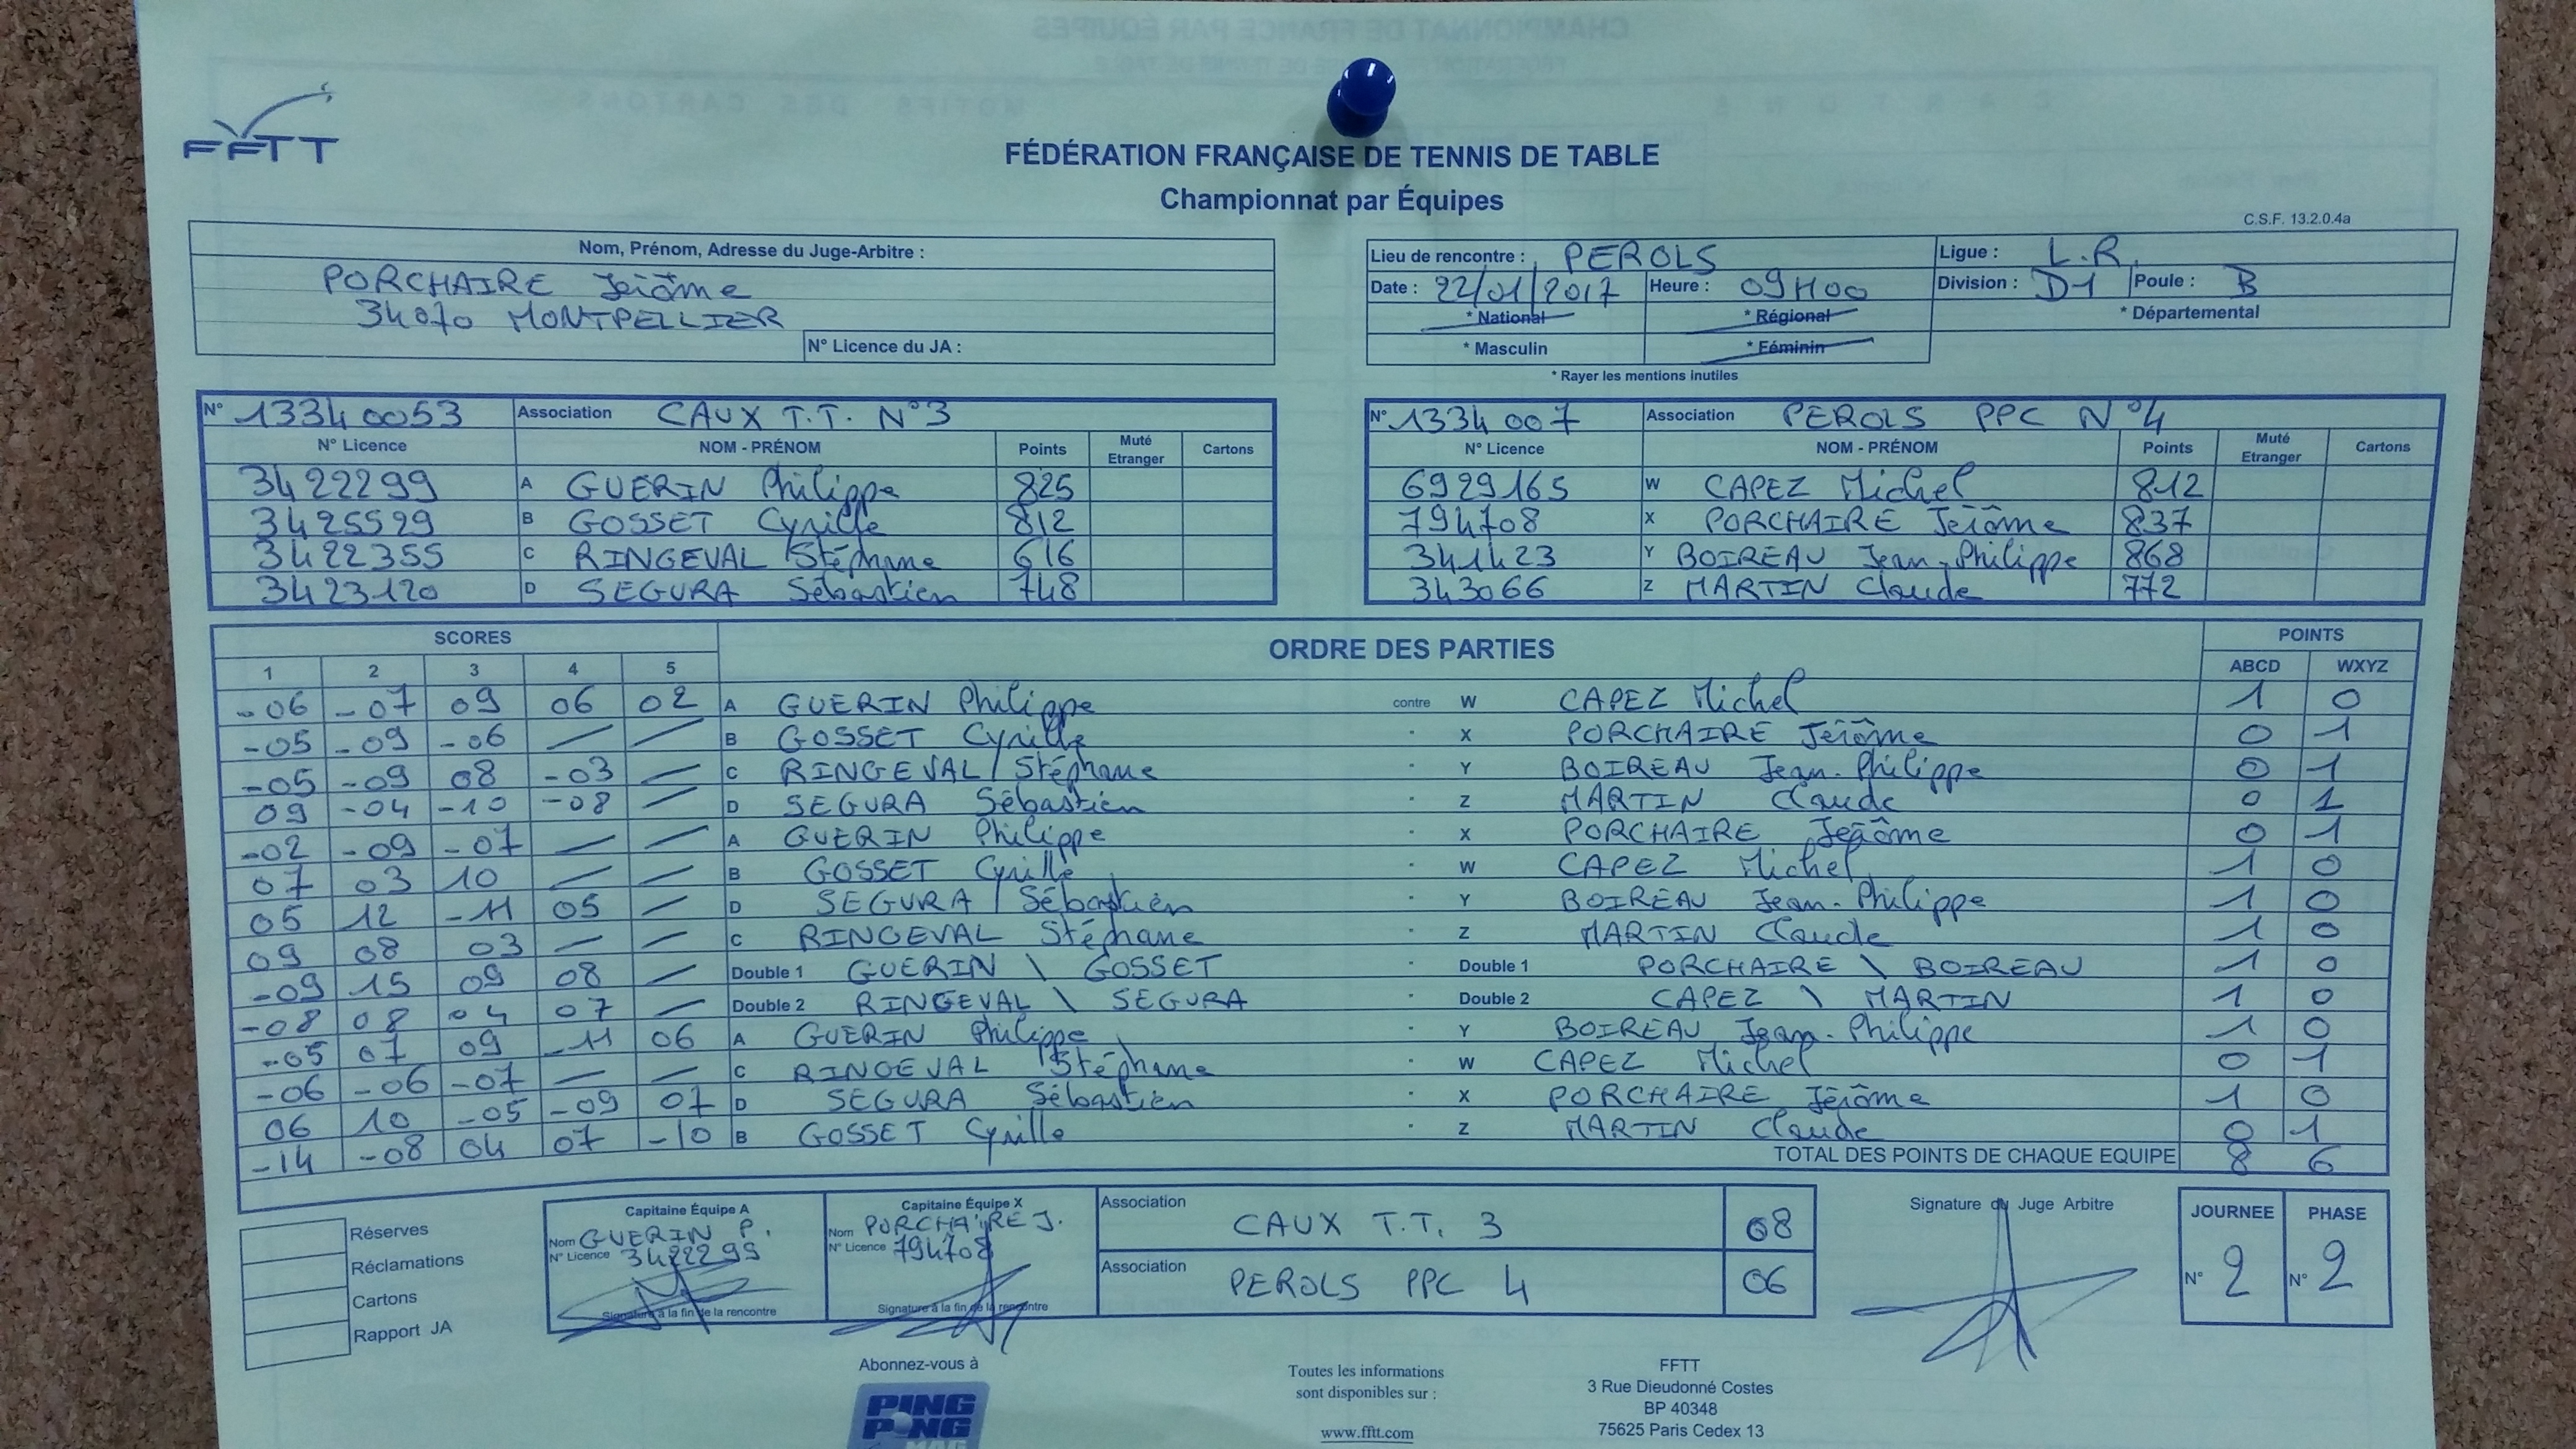 FFTT
FÉDÉRATION FRANÇAISE DE TENNIS DE TABLE
Championnat par Équipes
C.S.F. 13.2.0.4a
Nom, Prénom, Adresse du Juge-Arbitre :
PORCHAIRE Jérôme
34070 MONTPELLIER
N° Licence du JA :
Lieu de rencontre : PEROLS Ligue : L.R.
Date : 22/01/2017 Heure : 09H00 Division : D1 Poule : B
* National * Régional * Départemental
* Masculin * Féminin
* Rayer les mentions inutiles
N° 13340053 Association CAUX T.T. N°3
N° Licence NOM - PRÉNOM Points Muté Etranger Cartons
3422299 A GUERIN Philippe 825
3425529 B GOSSET Cyrille 812
3422355 C RINGEVAL Stéphane 616
3423120 D SEGURA Sébastien 748
N° 1334007 Association PEROLS PPC N°4
N° Licence NOM - PRÉNOM Points Muté Etranger Cartons
6929165 W CAPEZ Michel 812
794708 X PORCHAIRE Jérôme 837
341423 Y BOIREAU Jean-Philippe 868
343066 Z MARTIN Claude 772
SCORES ORDRE DES PARTIES POINTS
1 2 3 4 5 ABCD WXYZ
-06 -07 09 06 02 A GUERIN Philippe contre W CAPEZ Michel 1 0
-05 -09 -06 — — B GOSSET Cyrille " X PORCHAIRE Jérôme 0 1
-05 -09 08 -03 — C RINGEVAL Stéphane " Y BOIREAU Jean-Philippe 0 1
09 -04 -10 -08 — D SEGURA Sébastien " Z MARTIN Claude 0 1
-02 -09 -07 — — A GUERIN Philippe " X PORCHAIRE Jérôme 0 1
07 03 10 — — B GOSSET Cyrille " W CAPEZ Michel 1 0
05 12 -11 05 — D SEGURA Sébastien " Y BOIREAU Jean-Philippe 1 0
09 08 03 — — C RINGEVAL Stéphane " Z MARTIN Claude 1 0
-09 15 09 08 — Double 1 GUERIN \ GOSSET " Double 1 PORCHAIRE \ BOIREAU 1 0
-08 08 04 07 — Double 2 RINGEVAL \ SEGURA " Double 2 CAPEZ \ MARTIN 1 0
-05 07 09 -11 06 A GUERIN Philippe " Y BOIREAU Jean-Philippe 1 0
-06 -06 -07 — — C RINGEVAL Stéphane " W CAPEZ Michel 0 1
06 10 -05 -09 07 D SEGURA Sébastien " X PORCHAIRE Jérôme 1 0
-14 -08 04 07 -10 B GOSSET Cyrille " Z MARTIN Claude 0 1
TOTAL DES POINTS DE CHAQUE EQUIPE 8 6
Réserves
Réclamations
Cartons
Rapport JA
Capitaine Équipe A
Nom GUERIN P.
N° Licence 3422299
Signature à la fin de la rencontre
Capitaine Équipe X
Nom PORCHAIRE J.
N° Licence 794708
Signature à la fin de la rencontre
Association CAUX T.T. 3 08
Association PEROLS PPC 4 06
Signature du Juge Arbitre
JOURNEE PHASE
N° 2 N° 2
Abonnez-vous à
PING
PONG
MAG
Toutes les informations
sont disponibles sur :
www.fftt.com
FFTT
3 Rue Dieudonné Costes
BP 40348
75625 Paris Cedex 13